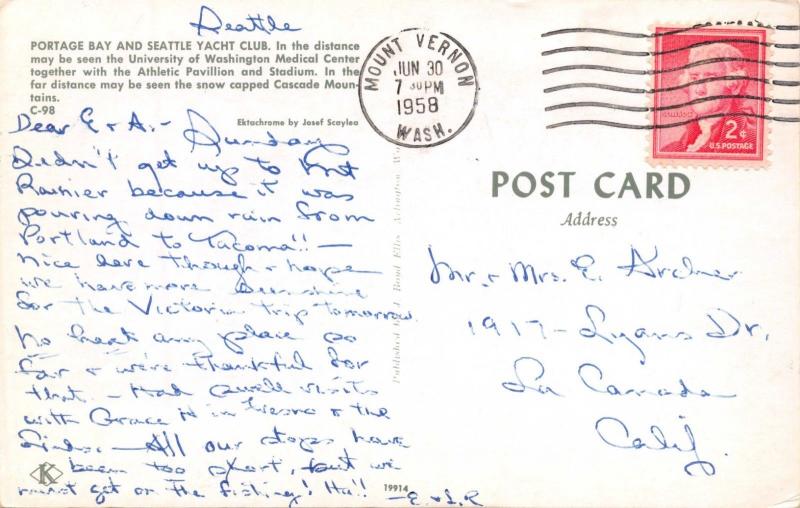 Seattle
PORTAGE BAY AND SEATTLE YACHT CLUB. In the distance
may be seen the University of Washington Medical Center
together with the Athletic Pavillion and Stadium. In the
far distance may be seen the snow capped Cascade Moun-
tains.
C-98
Ektachrome by Josef Scaylea
Dear E & A:- Sunday
Didn't get up to Mt
Rainier because it was
pouring down rain from
Portland to Tacoma!! -
nice here though & hope
we have more sunshine
for the Victoria trip tomorrow.
No heat any place so
far & we're thankful for
that. - Had swell visits
with Grace H in Fresno & the
- All our stops have
been too short, but we
must get on the fishing! Ha!!
- E. & L. R
K
19914
Published by J. Boyd Ellis, Arlington, Wa
MOUNT VERNON
JUN 30
7 30 PM
1958
WASH.
2¢
U.S. POSTAGE
POST CARD
Address
Mr. & Mrs. E. Archer
1917 - Lyans Dr.
La Canada
Calif.